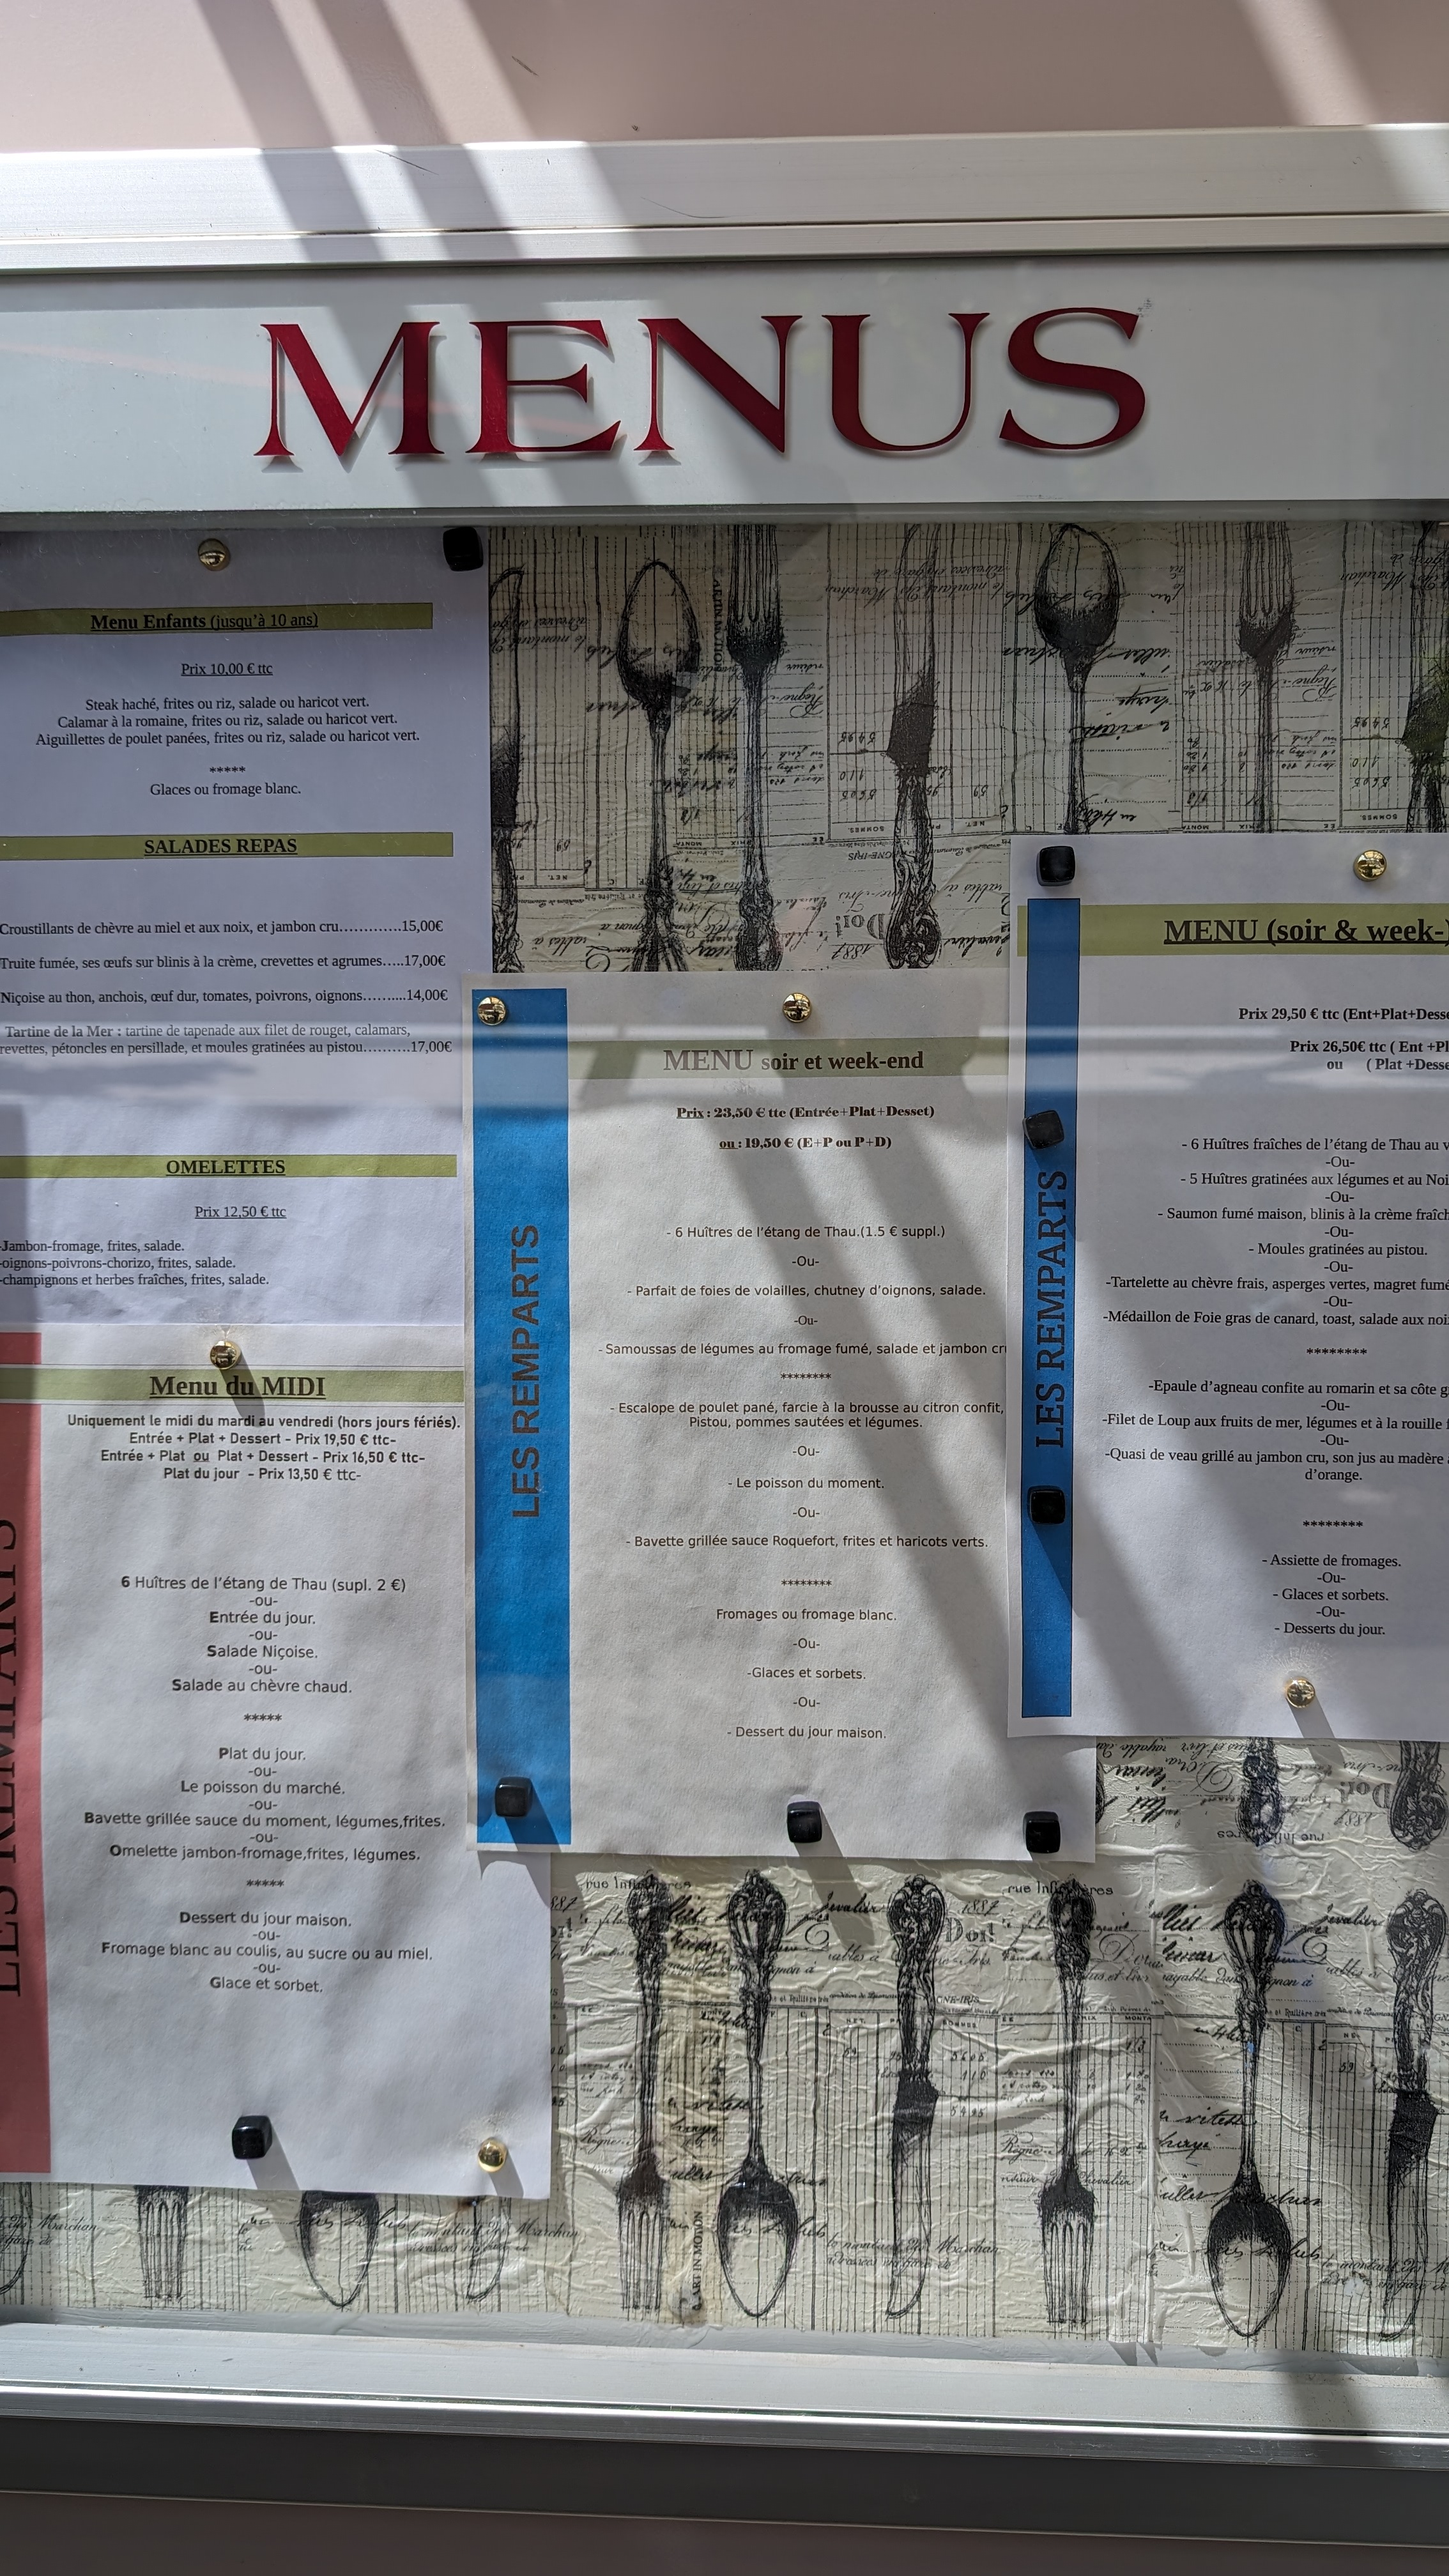 MENUS
Menu Enfants (jusqu'à 10 ans)
Prix 10,00 € ttc
Steak haché, frites ou riz, salade ou haricot vert.
Calamar à la romaine, frites ou riz, salade ou haricot vert.
Aiguillettes de poulet panées, frites ou riz, salade ou haricot vert.
*****
Glaces ou fromage blanc.
SALADES REPAS
Croustillants de chèvre au miel et aux noix, et jambon cru.............15,00€
Truite fumée, ses œufs sur blinis à la crème, crevettes et agrumes.....17,00€
Niçoise au thon, anchois, œuf dur, tomates, poivrons, oignons..........14,00€
Tartine de la Mer : tartine de tapenade aux filet de rouget, calamars,
revettes, pétoncles en persillade, et moules gratinées au pistou..........17,00€
OMELETTES
Prix 12,50 € ttc
-Jambon-fromage, frites, salade.
-oignons-poivrons-chorizo, frites, salade.
-champignons et herbes fraîches, frites, salade.
LES REMPARTS
Menu du MIDI
Uniquement le midi du mardi au vendredi (hors jours fériés).
Entrée + Plat + Dessert - Prix 19,50 € ttc-
Entrée + Plat ou Plat + Dessert - Prix 16,50 € ttc-
Plat du jour - Prix 13,50 € ttc-
6 Huîtres de l'étang de Thau (supl. 2 €)
-ou-
Entrée du jour.
-ou-
Salade Niçoise.
-ou-
Salade au chèvre chaud.
*****
Plat du jour.
-ou-
Le poisson du marché.
-ou-
Bavette grillée sauce du moment, légumes,frites.
-ou-
Omelette jambon-fromage,frites, légumes.
*****
Dessert du jour maison.
-ou-
Fromage blanc au coulis, au sucre ou au miel.
-ou-
Glace et sorbet.
LES REMPARTS
MENU soir et week-end
Prix : 23,50 € ttc (Entrée+Plat+Desset)
ou : 19,50 € (E+P ou P+D)
- 6 Huîtres de l'étang de Thau.(1.5 € suppl.)
-Ou-
- Parfait de foies de volailles, chutney d'oignons, salade.
-Ou-
- Samoussas de légumes au fromage fumé, salade et jambon cru
********
- Escalope de poulet pané, farcie à la brousse au citron confit,
Pistou, pommes sautées et légumes.
-Ou-
- Le poisson du moment.
-Ou-
- Bavette grillée sauce Roquefort, frites et haricots verts.
********
Fromages ou fromage blanc.
-Ou-
-Glaces et sorbets.
-Ou-
- Dessert du jour maison.
LES REMPARTS
MENU (soir & week-
Prix 29,50 € ttc (Ent+Plat+Desse
Prix 26,50€ ttc ( Ent +Pl
ou ( Plat +Desse
- 6 Huîtres fraîches de l'étang de Thau au v
-Ou-
- 5 Huîtres gratinées aux légumes et au Noi
-Ou-
- Saumon fumé maison, blinis à la crème fraîch
-Ou-
- Moules gratinées au pistou.
-Ou-
-Tartelette au chèvre frais, asperges vertes, magret fumé
-Ou-
-Médaillon de Foie gras de canard, toast, salade aux noi
********
-Epaule d'agneau confite au romarin et sa côte g
-Ou-
-Filet de Loup aux fruits de mer, légumes et à la rouille
-Ou-
-Quasi de veau grillé au jambon cru, son jus au madère
d'orange.
********
- Assiette de fromages.
-Ou-
- Glaces et sorbets.
-Ou-
- Desserts du jour.